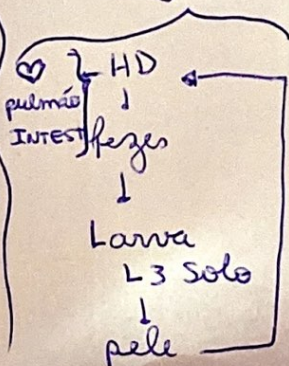 HD
pulmão
INTEST fezes
Larva
L3 Solo
pele